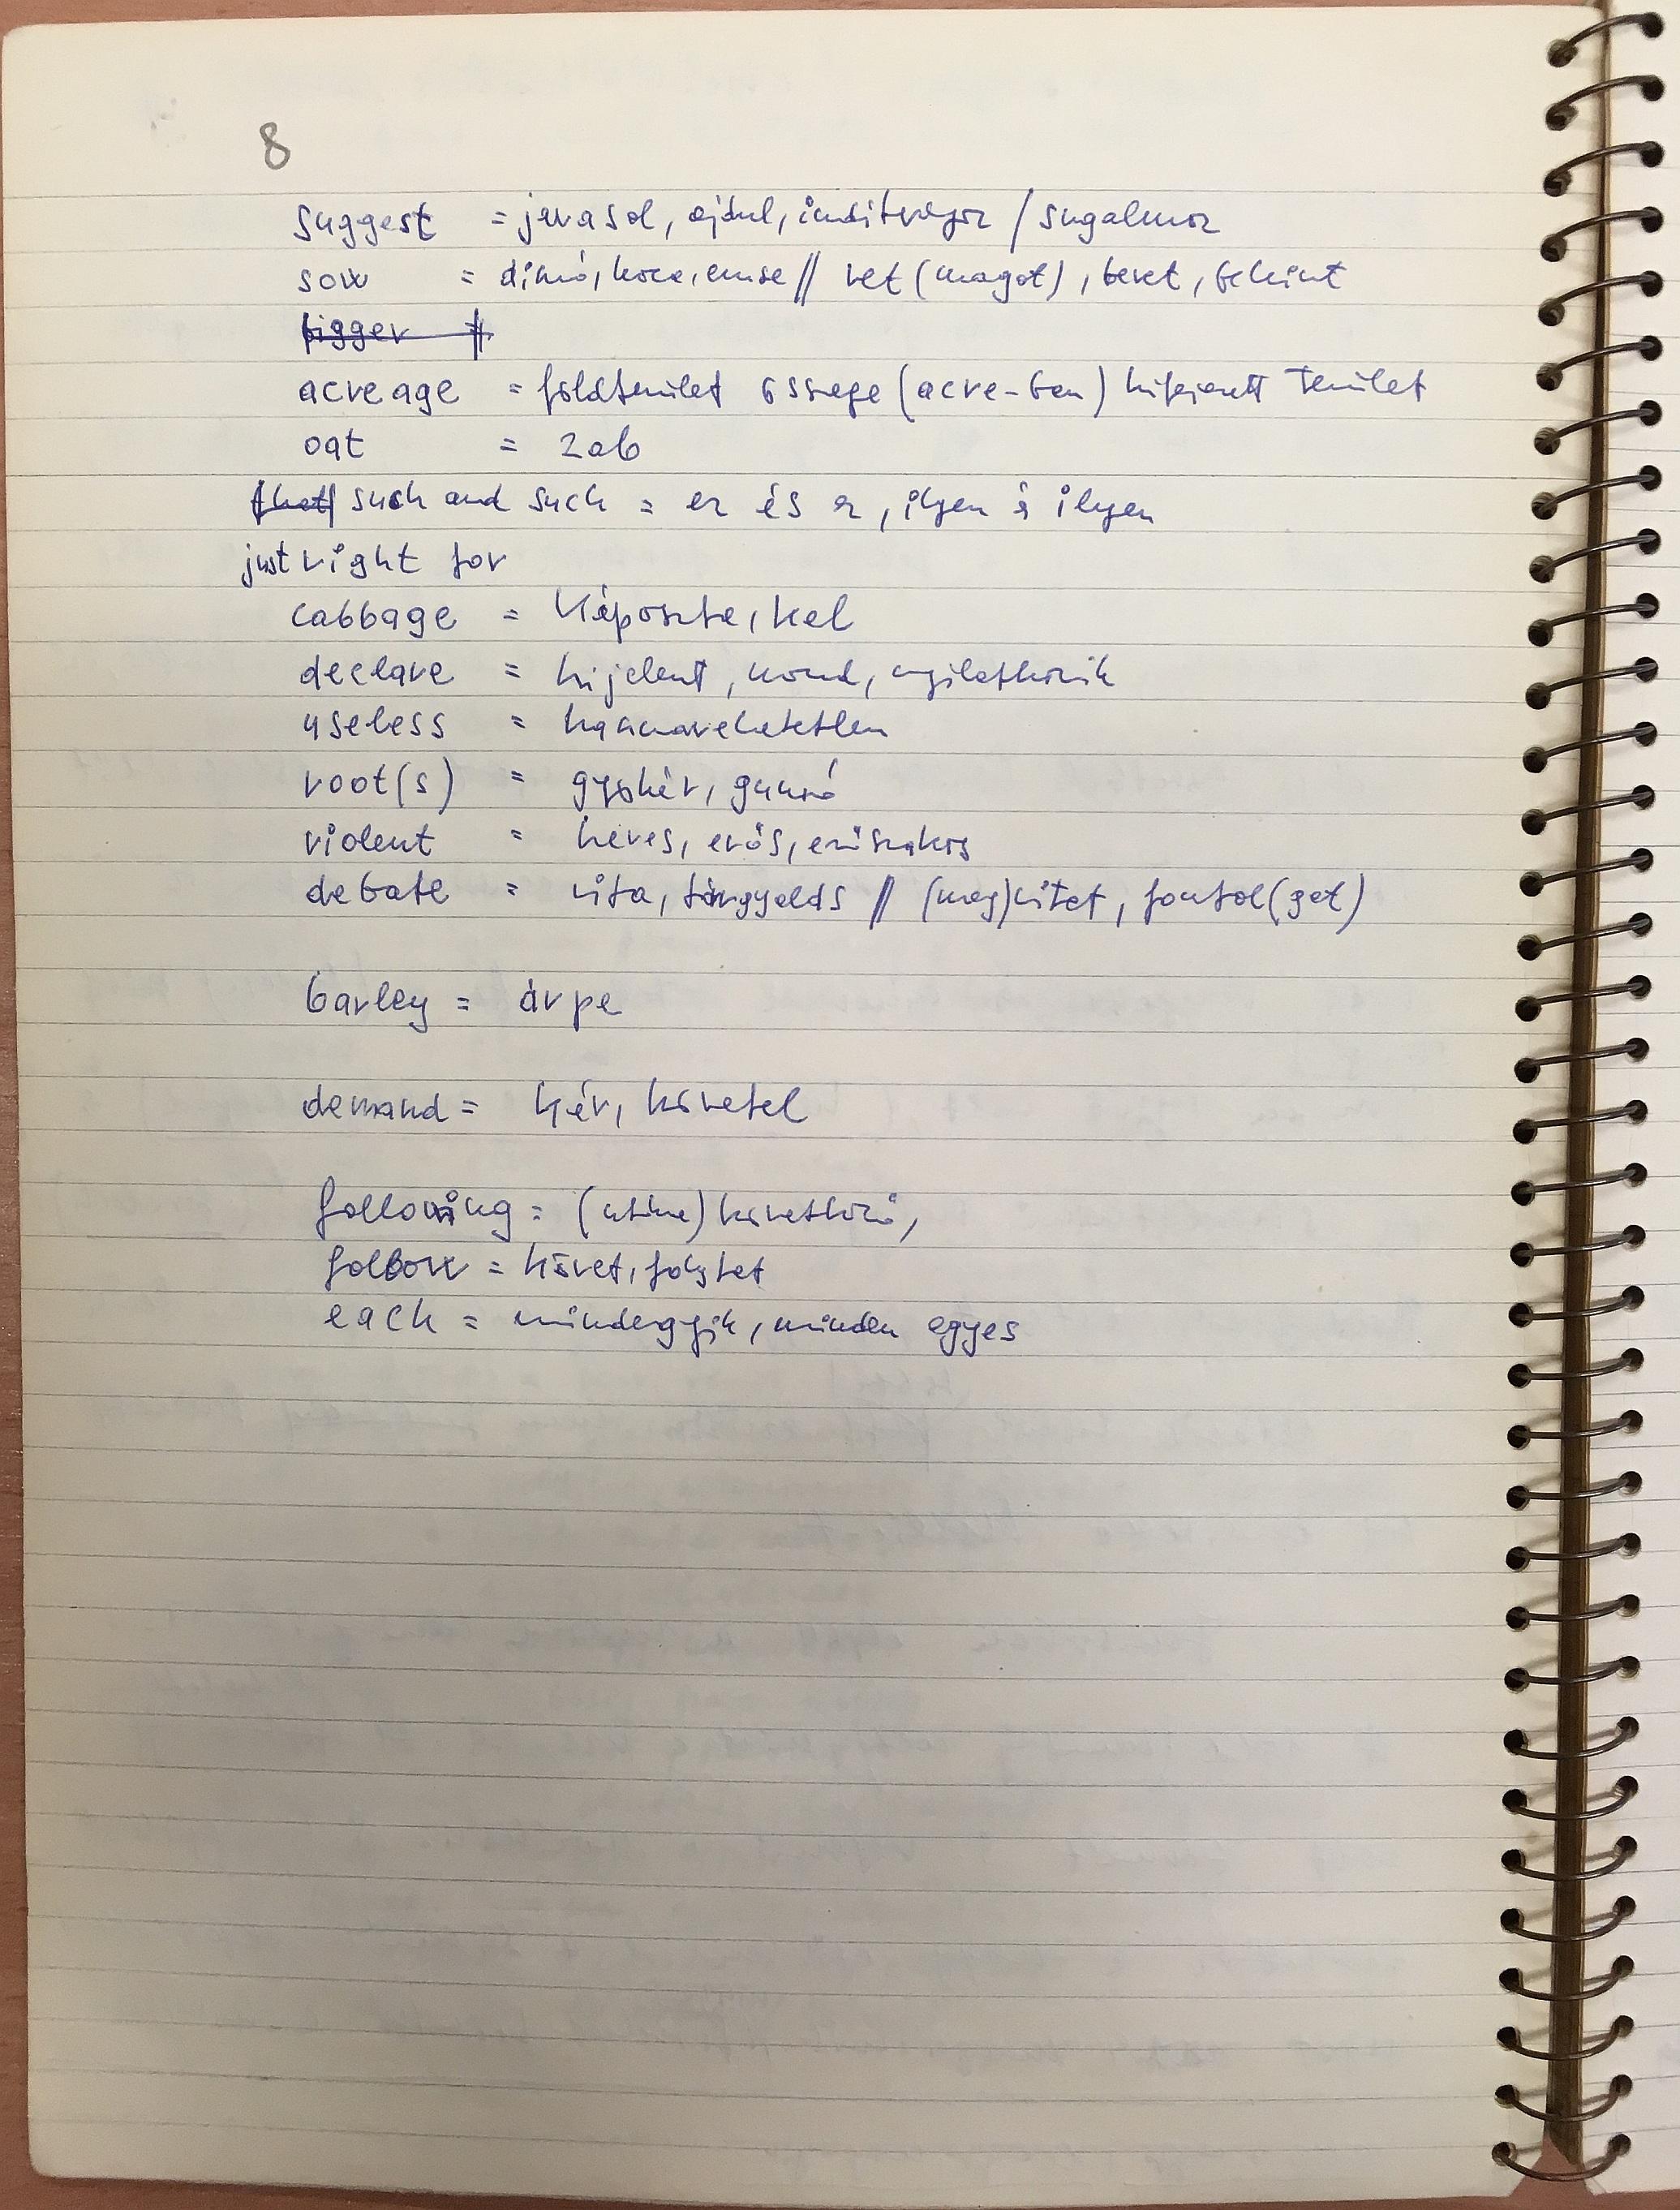 8
suggest = javasol, ajánl, indítványoz / sugalmaz
sow = disznó, koca, emse // vet (magot), bevet, behint
bigger =
acreage = földterület összege (acre-ben) kifejezett terület
oat = zab
(that) such and such = ez és ez, ilyen és ilyen
just right for
cabbage = káposzta, kel
declare = kijelent, mond, nyilatkozik
useless = hasznavehetetlen
root(s) = gyökér, gumó
violent = heves, erős, erőszakos
debate = vita, tárgyalás // (meg)vitat, fontol(gat)
barley = árpa
demand = kér, követel
following = (utána) következő,
follow = követ, folytat
each = mindegyik, minden egyes